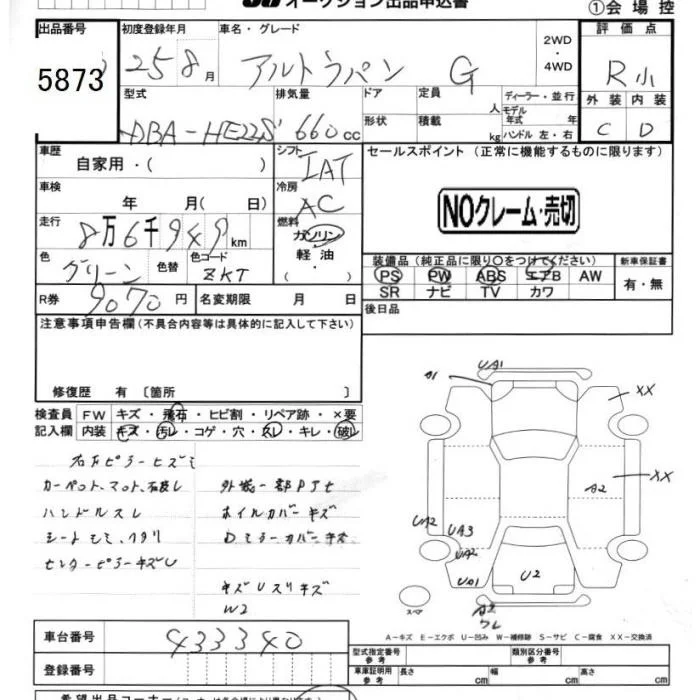 オークション出品申込書
①会場控
出品番号
5873
初度登録年月
25 8月
車名・グレード
アルトラパン G
2WD
4WD
評価点
R小
外装 内装
C D
型式
DBA-HE22S
排気量
660cc
ドア
形状
定員 人
積載 kg
ディーラー・並行
モデル年式 年
ハンドル 左・右
車歴
自家用・( )
シフト
IAT
セールスポイント (正常に機能するものに限ります)
NOクレーム・売切
車検
年 月( 日)
冷房
AC
走行
8万6千949km
燃料
ガソリン
軽油
( )
色
グリーン
色替
色コード
ZKT
装備品 (純正品に限り○をつけてください)
PS PW ABS エアB AW
SR ナビ TV カワ
新車保証書
有・無
R券
9070円
名変期限 月 日
後日品
注意事項申告欄(不具合内容等は具体的に記入して下さい)
修復歴 有 〔箇所 〕
検査員記入欄
FW キズ・飛石・ヒビ割・リペア跡・×要
内装 キズ・汚レ・コゲ・穴・スレ・キレ・破レ
右Fピラーヒズミ
カーペット、マット、右破レ
ハンドルスレ
シートシミ、ヘタリ
センターピラーキズU
外装一部PJモ
ホイルカバーキズ
Dミラーカバーキズ
キズUスリキズ
W2
A1
UA1
XX
XX
A2
UA2
UA3
UA2
UO1
U2
A2
ワレ
スペア
A-キズ E-エクボ U-凹み W-補修跡 S-サビ C-腐食 XX-交換済
車台番号
433340
登録番号
型式指定番号
参考
類別区分番号
参考
車庫証明用
参考
長さ cm 幅 cm 高さ cm